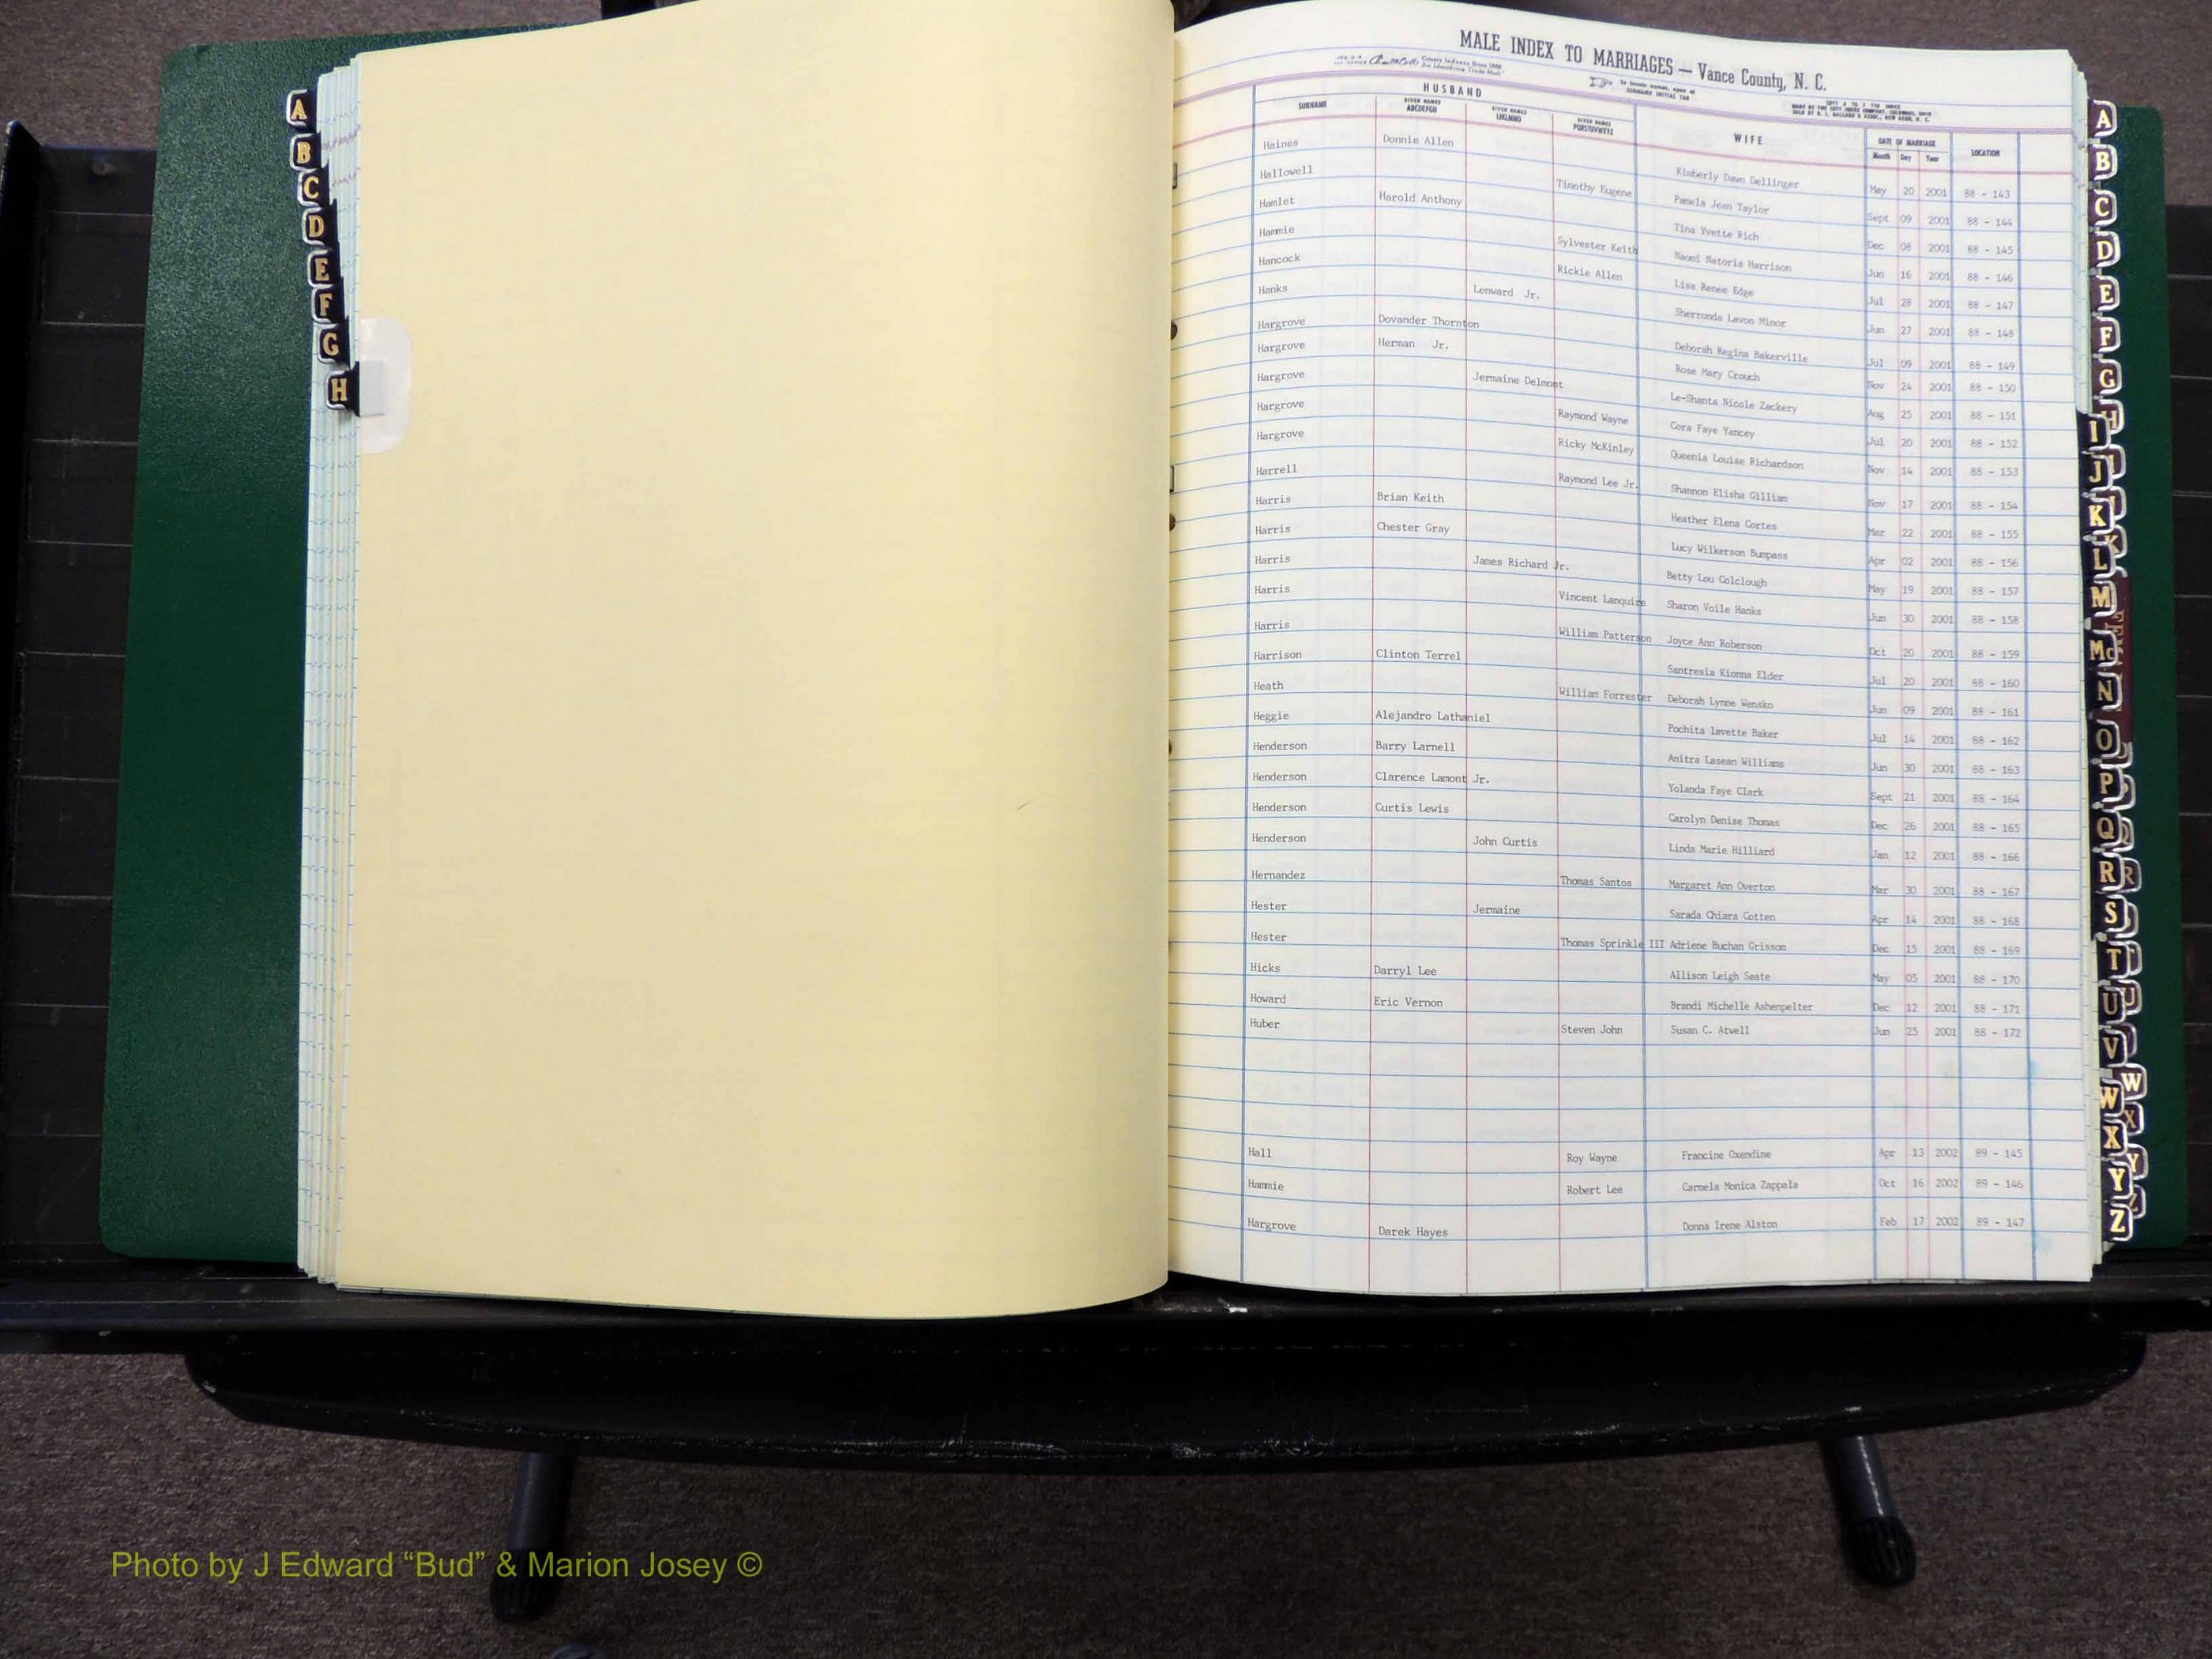 MALE INDEX TO MARRIAGES — Vance County, N. C.
To locate names, open at
SURNAME INITIAL TAB
HUSBAND
SURNAME GIVEN NAMES ABCDEFGH GIVEN NAMES IJKLMNO GIVEN NAMES PQRSTUVWXYZ WIFE DATE OF MARRIAGE Month Day Year LOCATION
Haines Donnie Allen Kimberly Dawn Dellinger May 20 2001 88 - 143
Hallowell Timothy Eugene Pamela Jean Taylor Sept 09 2001 88 - 144
Hamlet Harold Anthony Tina Yvette Rich Dec 08 2001 88 - 145
Hammie Sylvester Keith Naomi Natoria Harrison Jun 16 2001 88 - 146
Hancock Rickie Allen Lisa Renee Edge Jul 28 2001 88 - 147
Hanks Lenward Jr. Sherronda Lavon Minor Jun 27 2001 88 - 148
Hargrove Dovander Thornton Deborah Regina Bakerville Jul 09 2001 88 - 149
Hargrove Herman Jr. Rose Mary Crouch Nov 24 2001 88 - 150
Hargrove Jermaine Delmont Le-Shanta Nicole Zackery Aug 25 2001 88 - 151
Hargrove Raymond Wayne Cora Faye Yancey Jul 20 2001 88 - 152
Hargrove Ricky McKinley Queenia Louise Richardson Nov 14 2001 88 - 153
Harrell Raymond Lee Jr. Shannon Elisha Gilliam Nov 17 2001 88 - 154
Harris Brian Keith Heather Elena Cortes Mar 22 2001 88 - 155
Harris Chester Gray Lucy Wilkerson Bumpass Apr 02 2001 88 - 156
Harris James Richard Jr. Betty Lou Colclough May 19 2001 88 - 157
Harris Vincent Lanquire Sharon Voile Hanks Jun 30 2001 88 - 158
Harris William Patterson Joyce Ann Roberson Oct 20 2001 88 - 159
Harrison Clinton Terrel Santresia Kionna Elder Jul 20 2001 88 - 160
Heath William Forrester Deborah Lynne Wensko Jun 09 2001 88 - 161
Heggie Alejandro Lathaniel Pochita lavette Baker Jul 14 2001 88 - 162
Henderson Barry Larnell Anitra Lasean Williams Jun 30 2001 88 - 163
Henderson Clarence Lamont Jr. Yolanda Faye Clark Sept 21 2001 88 - 164
Henderson Curtis Lewis Carolyn Denise Thomas Dec 26 2001 88 - 165
Henderson John Curtis Linda Marie Hilliard Jan 12 2001 88 - 166
Hernandez Thomas Santos Margaret Ann Overton Mar 30 2001 88 - 167
Hester Jermaine Sarada Chiara Cotten Apr 14 2001 88 - 168
Hester Thomas Sprinkle III Adriene Buchan Grissom Dec 15 2001 88 - 169
Hicks Darryl Lee Allison Leigh Seate May 05 2001 88 - 170
Howard Eric Vernon Brandi Michelle Ashenpelter Dec 12 2001 88 - 171
Huber Steven John Susan C. Atwell Jun 25 2001 88 - 172
Hall Roy Wayne Francine Oxendine Apr 13 2002 89 - 145
Hammie Robert Lee Carmela Monica Zappala Oct 16 2002 89 - 146
Hargrove Darek Hayes Donna Irene Alston Feb 17 2002 89 - 147
A
B
C
D
E
F
G
H
A
B
C
D
E
F
G
H
I
J
K
L
M
Mc
N
O
P
Q
R
S
T
U
V
W
X
Y
Z
Photo by J Edward “Bud” & Marion Josey ©